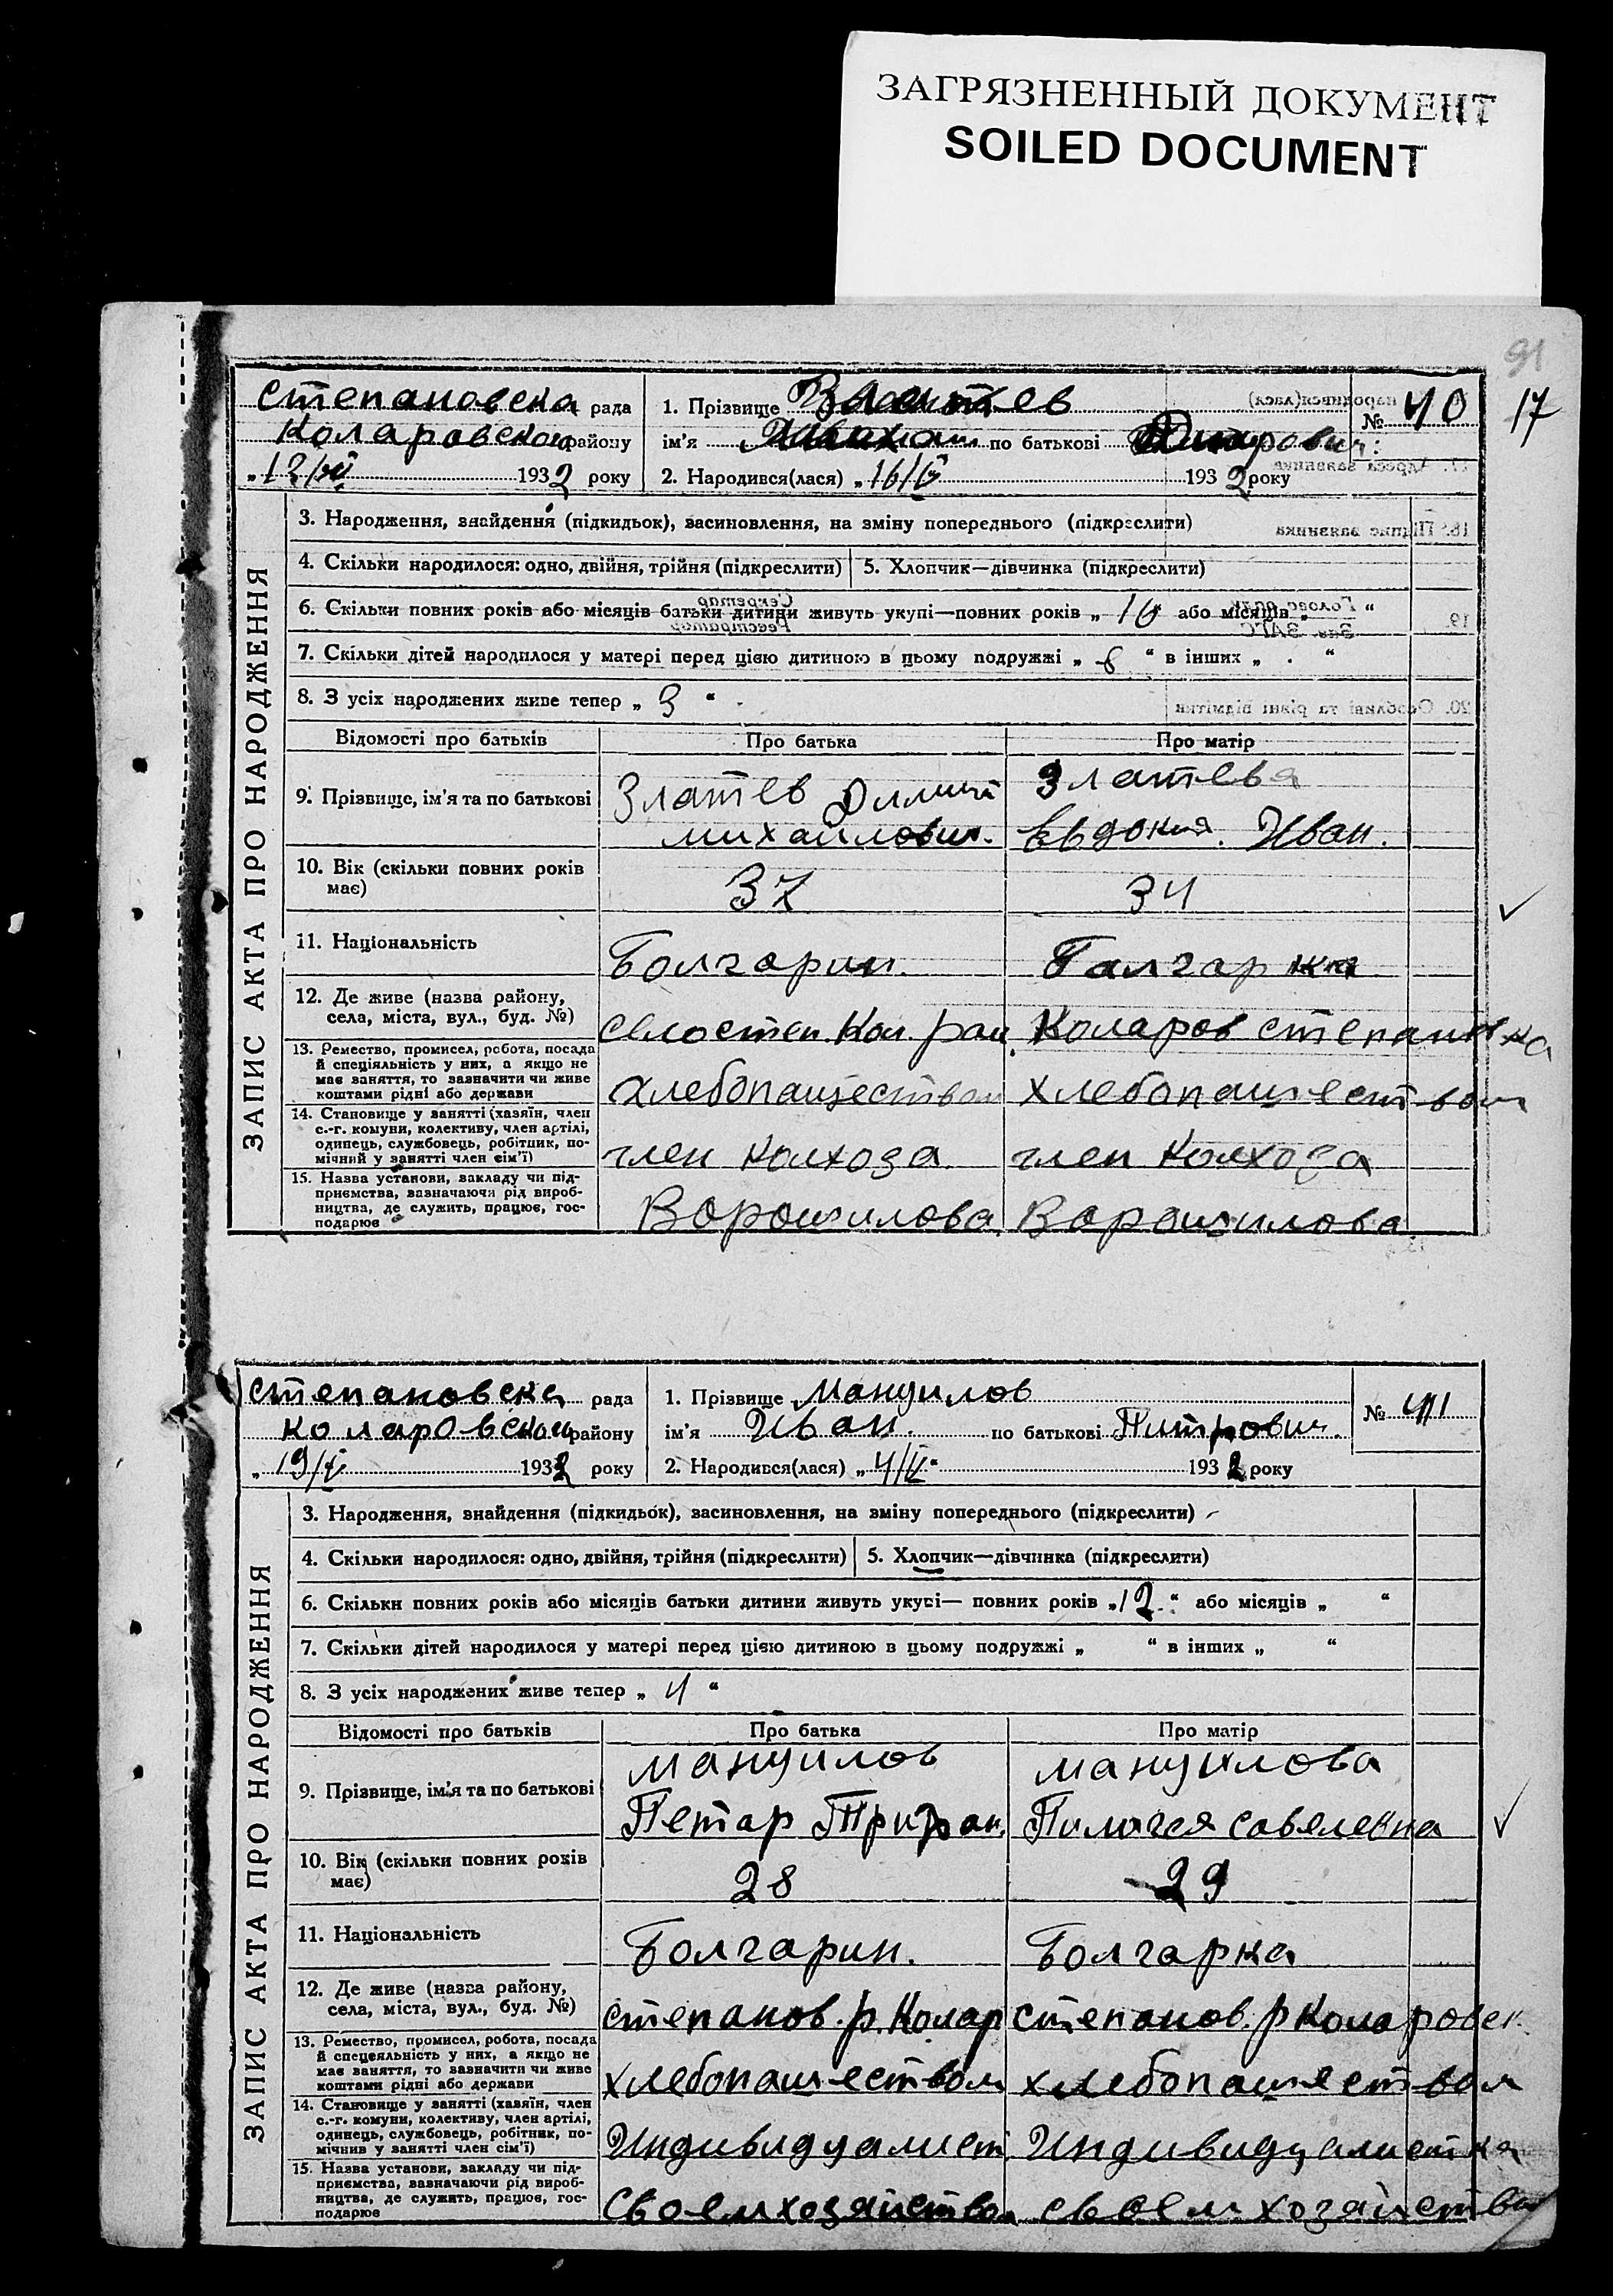 ЗАГРЯЗНЕННЫЙ ДОКУМЕНТ
SOILED DOCUMENT
91
17
Степановска рада
Коларовском району
1932 року
1. Прізвище
ім'я по батькові
2. Народився(лася) „16/ 1932 року
№ 40
ЗАПИС АКТА ПРО НАРОДЖЕННЯ
3. Народження, знайдення (підкидьок), засиновлення, на зміну попереднього (підкреслити)
4. Скільки народилося: одно, двійня, трійня (підкреслити) 5. Хлопчик—дівчинка (підкреслити)
6. Скільки повних років або місяців батьки дитини живуть укупі—повних років „ або місяців „ “
7. Скільки дітей народилося у матері перед цією дитиною в цьому подружжі „ “ в інших „ “
8. З усіх народжених живе тепер „ 3 “
Відомості про батьків Про батька Про матір
9. Прізвище, ім'я та по батькові
Златев
михайлович. 
Златева
Евдокия. Иван.
10. Вік (скільки повних років має)
37 34
11. Національність
Болгарин. Балгарка
12. Де живе (назва району, села, міста, вул., буд. №)
село степ. Кол. рай. Коларов степановка
13. Ремество, промисел, робота, посада
й спеціяльність у них, а якщо не
має заняття, то зазначити чи живе
коштами рідні або держави
хлебопашеством хлебопашеством
14. Становище у занятті (хазяїн, член
с.-г. комуни, колективу, член артілі,
одинець, службовець, робітник, по-
мічний у занятті член сім'ї)
член колхоза член колхоза
15. Назва установи, закладу чи під-
приємства, зазначаючи рід вироб-
ництва, де служить, працює, гос-
подарює
Ворошилова Ворошилова
Степановска рада
Коларовском району
„19/ 1932 року
1. Прізвище Мануилов
ім'я Иван. по батькові Питрович.
2. Народився(лася) „4/ “ 1932 року
№ 41
ЗАПИС АКТА ПРО НАРОДЖЕННЯ
3. Народження, знайдення (підкидьок), засиновлення, на зміну попереднього (підкреслити)
4. Скільки народилося: одно, двійня, трійня (підкреслити) 5. Хлопчик—дівчинка (підкреслити)
6. Скільки повних років або місяців батьки дитини живуть укупі— повних років „12“ або місяців „ “
7. Скільки дітей народилося у матері перед цією дитиною в цьому подружжі „ “ в інших „ “
8. З усіх народжених живе тепер „ 4 “
Відомості про батьків Про батька Про матір
9. Прізвище, ім'я та по батькові
Мануилов
Петар
Мануилова
Савелевна
10. Вік (скільки повних років має)
28 29
11. Національність
Болгарин. Болгарка
12. Де живе (назва району, села, міста, вул., буд. №)
степанов. р. Колар степанов. р Коларовск.
13. Ремество, промисел, робота, посада
й спецеяльність у них, а якщо не
має заняття, то зазначити чи живе
коштами рідні або держави
хлебопашеством хлебопашеством
14. Становище у занятті (хазяїн, член
с.-г. комуни, колективу, член артілі,
одинець, службовець, робітник, по-
мічник у занятті член сім'ї)
Индивидуалист Индивидуалистка
15. Назва установи, закладу чи під-
приємства, зазначаючи рід вироб-
ництва, де служить, працює, гос-
подарює
Своем хозяйства своем хозяйства